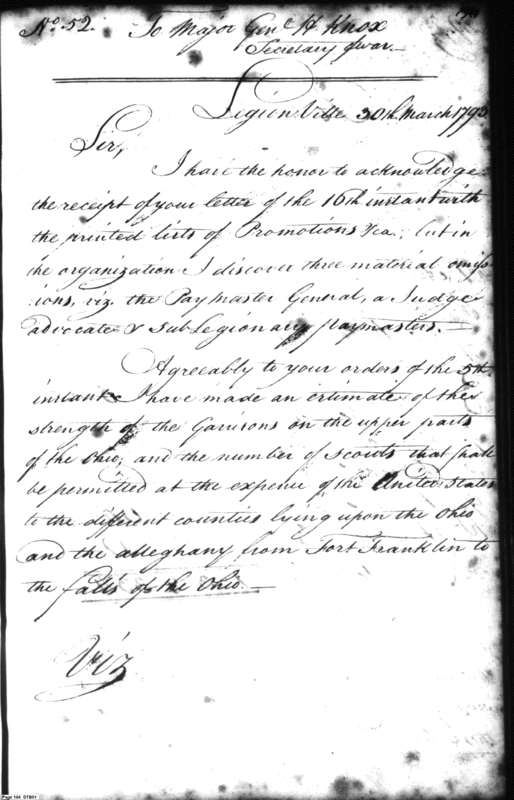 No. 52. To Major Genl. H Knox
Secretary of war
Legion Ville 30th March 1793
Sir,
I have the honor to acknowledge
the receipt of your letter of the 16th instant with
the printed lists of Promotions &ca.; but in
the organization I discover three material omiss
:ions, viz. the Paymaster General, a Judge
advocate & sub Legionary paymasters.—
Agreeably to your orders of the 5th
instant I have made an estimate of the
strength of the Garrisons on the upper parts
of the Ohio; and the number of scouts that shall
be permitted at the expense of the United States
to the different counties lying upon the Ohio
and the alleghany from Fort Franklin to
the falls of the Ohio.—
Viz
Page 194 DTB01